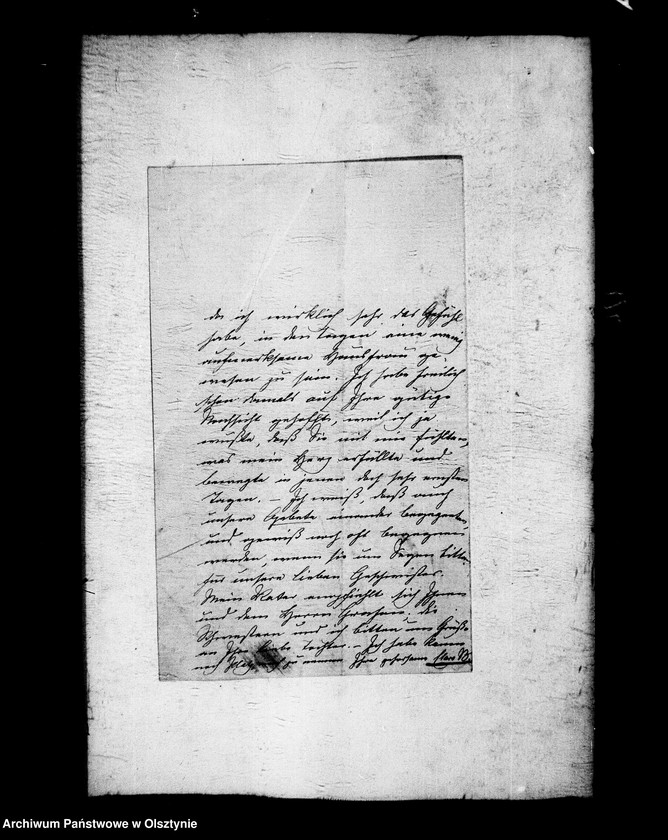 da ich wirklich sehr das Gefühl
habe, in den Tagen eine wenig
aufmerksame Hausfrau ge-
wesen zu sein. Ich habe freilich
schon damals auf Ihre gütige
Nachsicht gehofft, weil ich ja
wußte, daß Sie mit mir fühlten,
was mein Herz erfüllte und
bewegte in jenen doch sehr ernsten
Tagen. – Ich weiß, daß auch
unsere Gebete einander begegneten,
und gewiß noch oft begegnen
werden, wenn sie um Segen bitten
für unsere lieben Geschwister.
Mein Vater empfiehlt sich Ihnen
und dem Herrn, die
Schwestern und ich bitten um Grüße
an Ihre liebe Tochter. – Ich habe kaum
noch zu nennen Ihre gehorsame
Archiwum Państwowe w Olsztynie